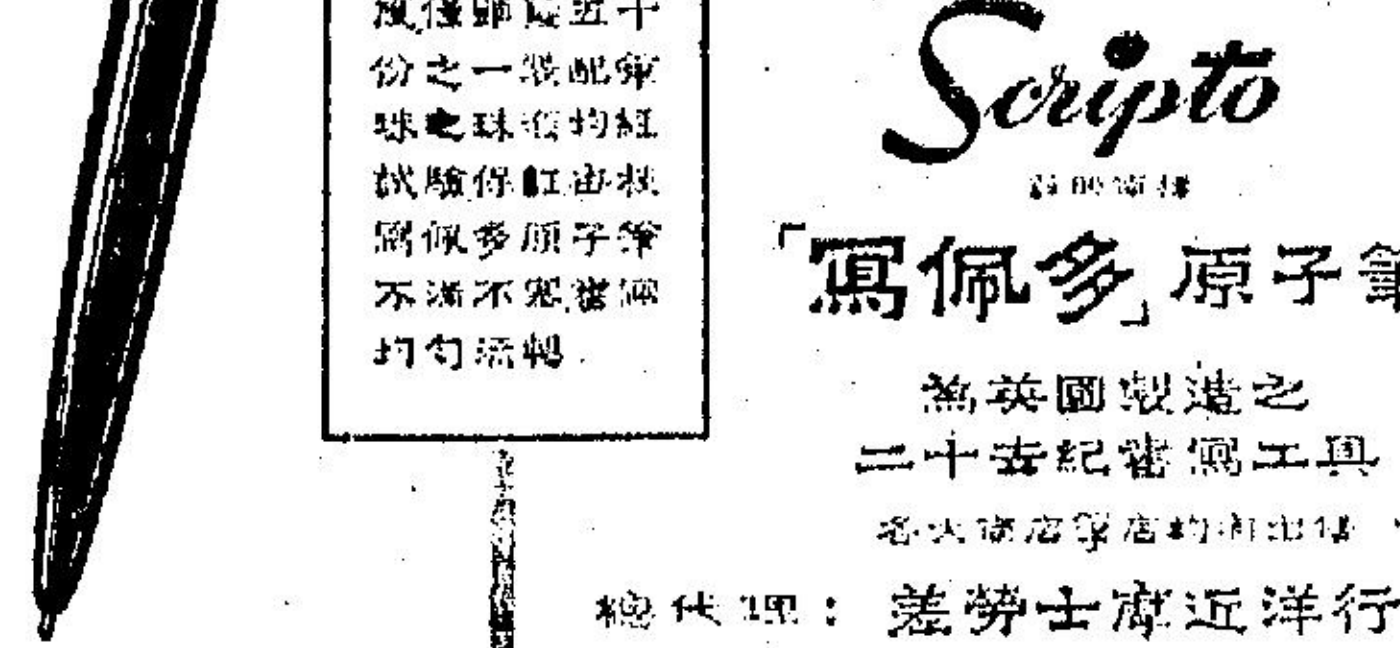 份之一裝配彈
珠之珠 均經
試驗保 由杖
寫佩多原子筆
不漏不 書寫
均勻流暢
Scripto
註冊商標
「寫佩多」原子筆
為英國製造之
二十世紀書寫工具
各大商店 店均有出售
總代理：差勞士 近洋行